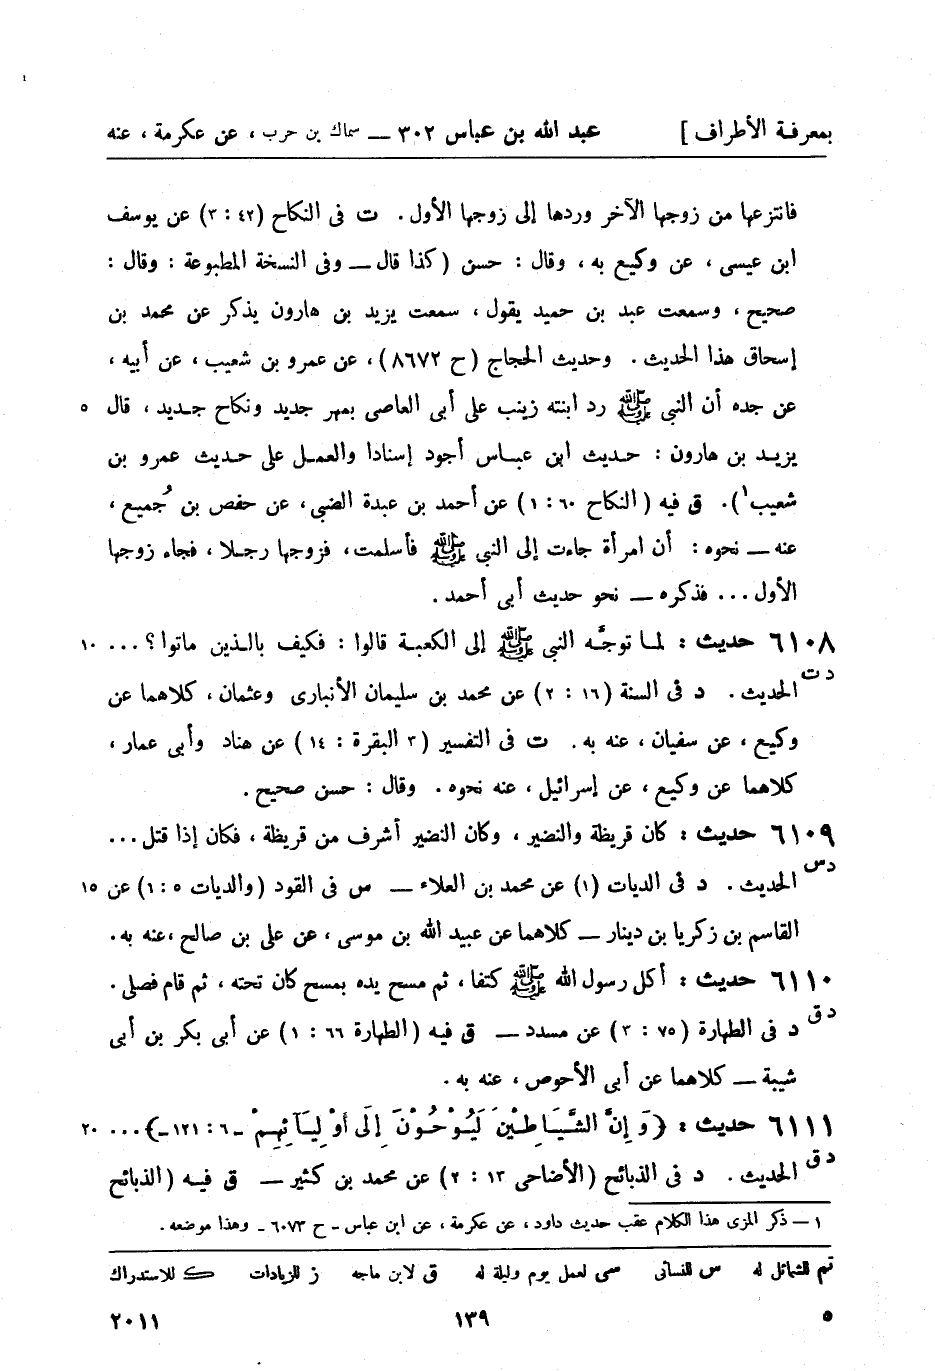 بمعرفة الأطراف ] عبد الله بن عباس ٣٠٢ ــ سماك بن حرب ، عن عكرمة ، عنه
فانتزعها من زوجها الآخر وردها إلى زوجها الأول . ت فى النكاح (٤٢ : ٣) عن يوسف
ابن عيسى ، عن وكيع به ، وقال : حسن (كذا قال ــ وفى النسخة المطبوعة : وقال :
صحيح ، وسمعت عبد بن حميد يقول ، سمعت يزيد بن هارون يذكر عن محمد بن
إسحاق هذا الحديث . وحديث الحجاج (ح ٨٦٧٢) ، عن عمرو بن شعيب ، عن أبيه ،
عن جده أن النبى ﷺ رد ابنته زينب على أبى العاصى بمهر جديد ونكاح جديد ، قال ٥
يزيد بن هارون : حديث ابن عباس أجود إسنادا والعمل على حديث عمرو بن
شعيب١) . ق فيه (النكاح ٦٠ : ١) عن أحمد بن عبدة الضبى ، عن حفص بن جُميع ،
عنه ــ نحوه : أن امرأة جاءت إلى النبى ﷺ فأسلمت ، فزوجها رجلا ، فجاء زوجها
الأول ... فذكره ــ نحو حديث أبى أحمد .
٦١٠٨ حديث : لما توجَّه النبى ﷺ إلى الكعبة قالوا : فكيف بالذين ماتوا ؟ ... ١٠
د ت الحديث . د فى السنة (١٦ : ٢) عن محمد بن سليمان الأنبارى وعثمان ، كلاهما عن
وكيع ، عن سفيان ، عنه به . ت فى التفسير (٣ البقرة : ١٤) عن هناد وأبى عمار ،
كلاهما عن وكيع ، عن إسرائيل ، عنه نحوه . وقال : حسن صحيح .
٦١٠٩ حديث : كان قريظة والنضير ، وكان النضير أشرف من قريظة ، فكان إذا قتل ...
د س الحديث . د فى الديات (١) عن محمد بن العلاء ــ س فى القود (والديات ٥ : ١) عن ١٥
القاسم بن زكريا بن دينار ــ كلاهما عن عبيد الله بن موسى ، عن على بن صالح ، عنه به .
٦١١٠ حديث : أكل رسول الله ﷺ كتفا ، ثم مسح يده بمسح كان تحته ، ثم قام فصلى .
د ق د فى الطهارة (٧٥ : ٣) عن مسدد ــ ق فيه (الطهارة ٦٦ : ١) عن أبى بكر بن أبى
شيبة ــ كلاهما عن أبى الأحوص ، عنه به .
٦١١١ حديث : {وَإِنَّ الشَّيَاطِيْنَ لَيُوْحُوْنَ إِلَى أَوْلِيَآئِهِمْ ـ ٦ : ١٢١ ـ} ... ٢٠
د ق الحديث . د فى الذبائح (الأضاحى ١٣ : ٢) عن محمد بن كثير ــ ق فيه (الذبائح
١ ــ ذكر المزى هذا الكلام عقب حديث داود ، عن عكرمة ، عن ابن عباس ـ ح ٦٠٧٣ ـ وهذا موضعه .
تم للشمائل له س للنسائى سى لعمل يوم وليلة له ق لابن ماجه ز للزيادات ك للاستدراك
٥ ١٣٩ ٢٠١١